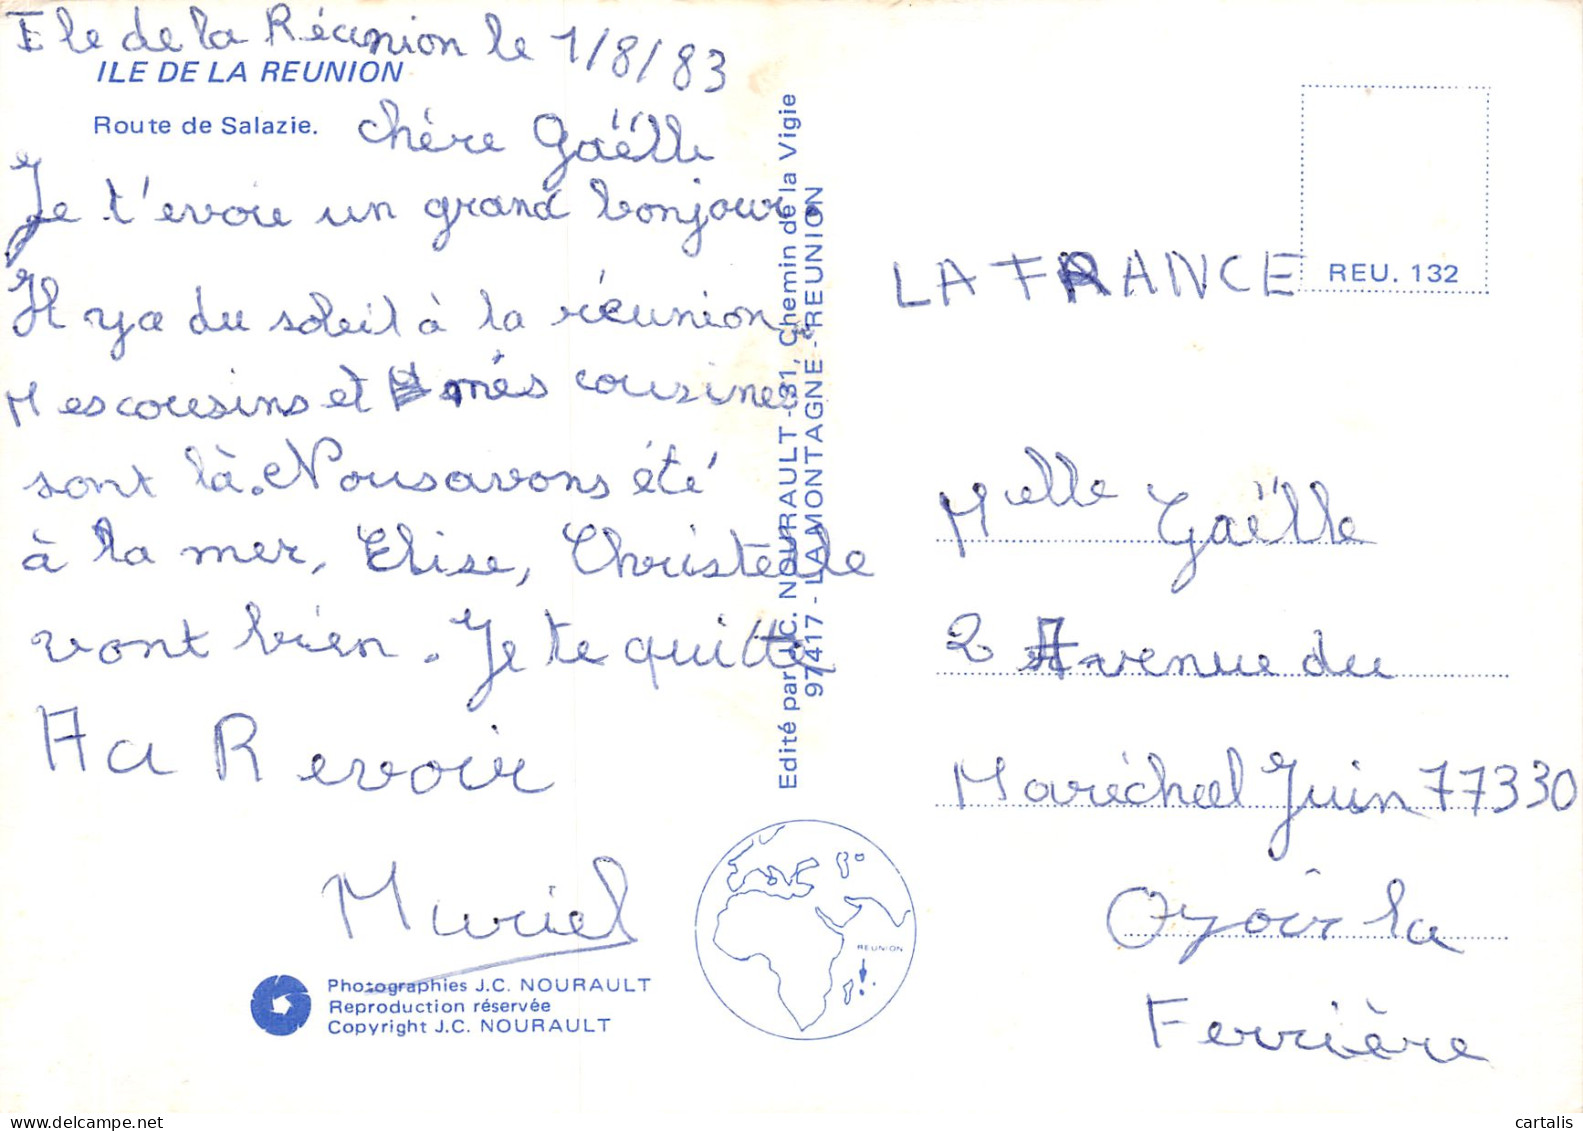 Ile de la Réunion le 1/8/83
ILE DE LA REUNION
Route de Salazie.
chère Gaëlle
Je t'evoie un grand bonjour.
Il ya du soleil à la réunion,
Mescousins et més cousines
sont là. Nousavons été
à la mer, Elise, Christelle
vont bien. Je te quitte
Au Revoir
Muriel
Photographies J.C. NOURAULT
Reproduction réservée
Copyright J.C. NOURAULT
Edité par J.C. NOURAULT - 31, Chemin de la Vigie
97417 - LA MONTAGNE - REUNION
REUNION
REU. 132
LA FRANCE
Melle Gaëlle
2 Avenue du
Maréchal Juin 77330
Ozoir la
Ferrière
delcampe.net
cartalis